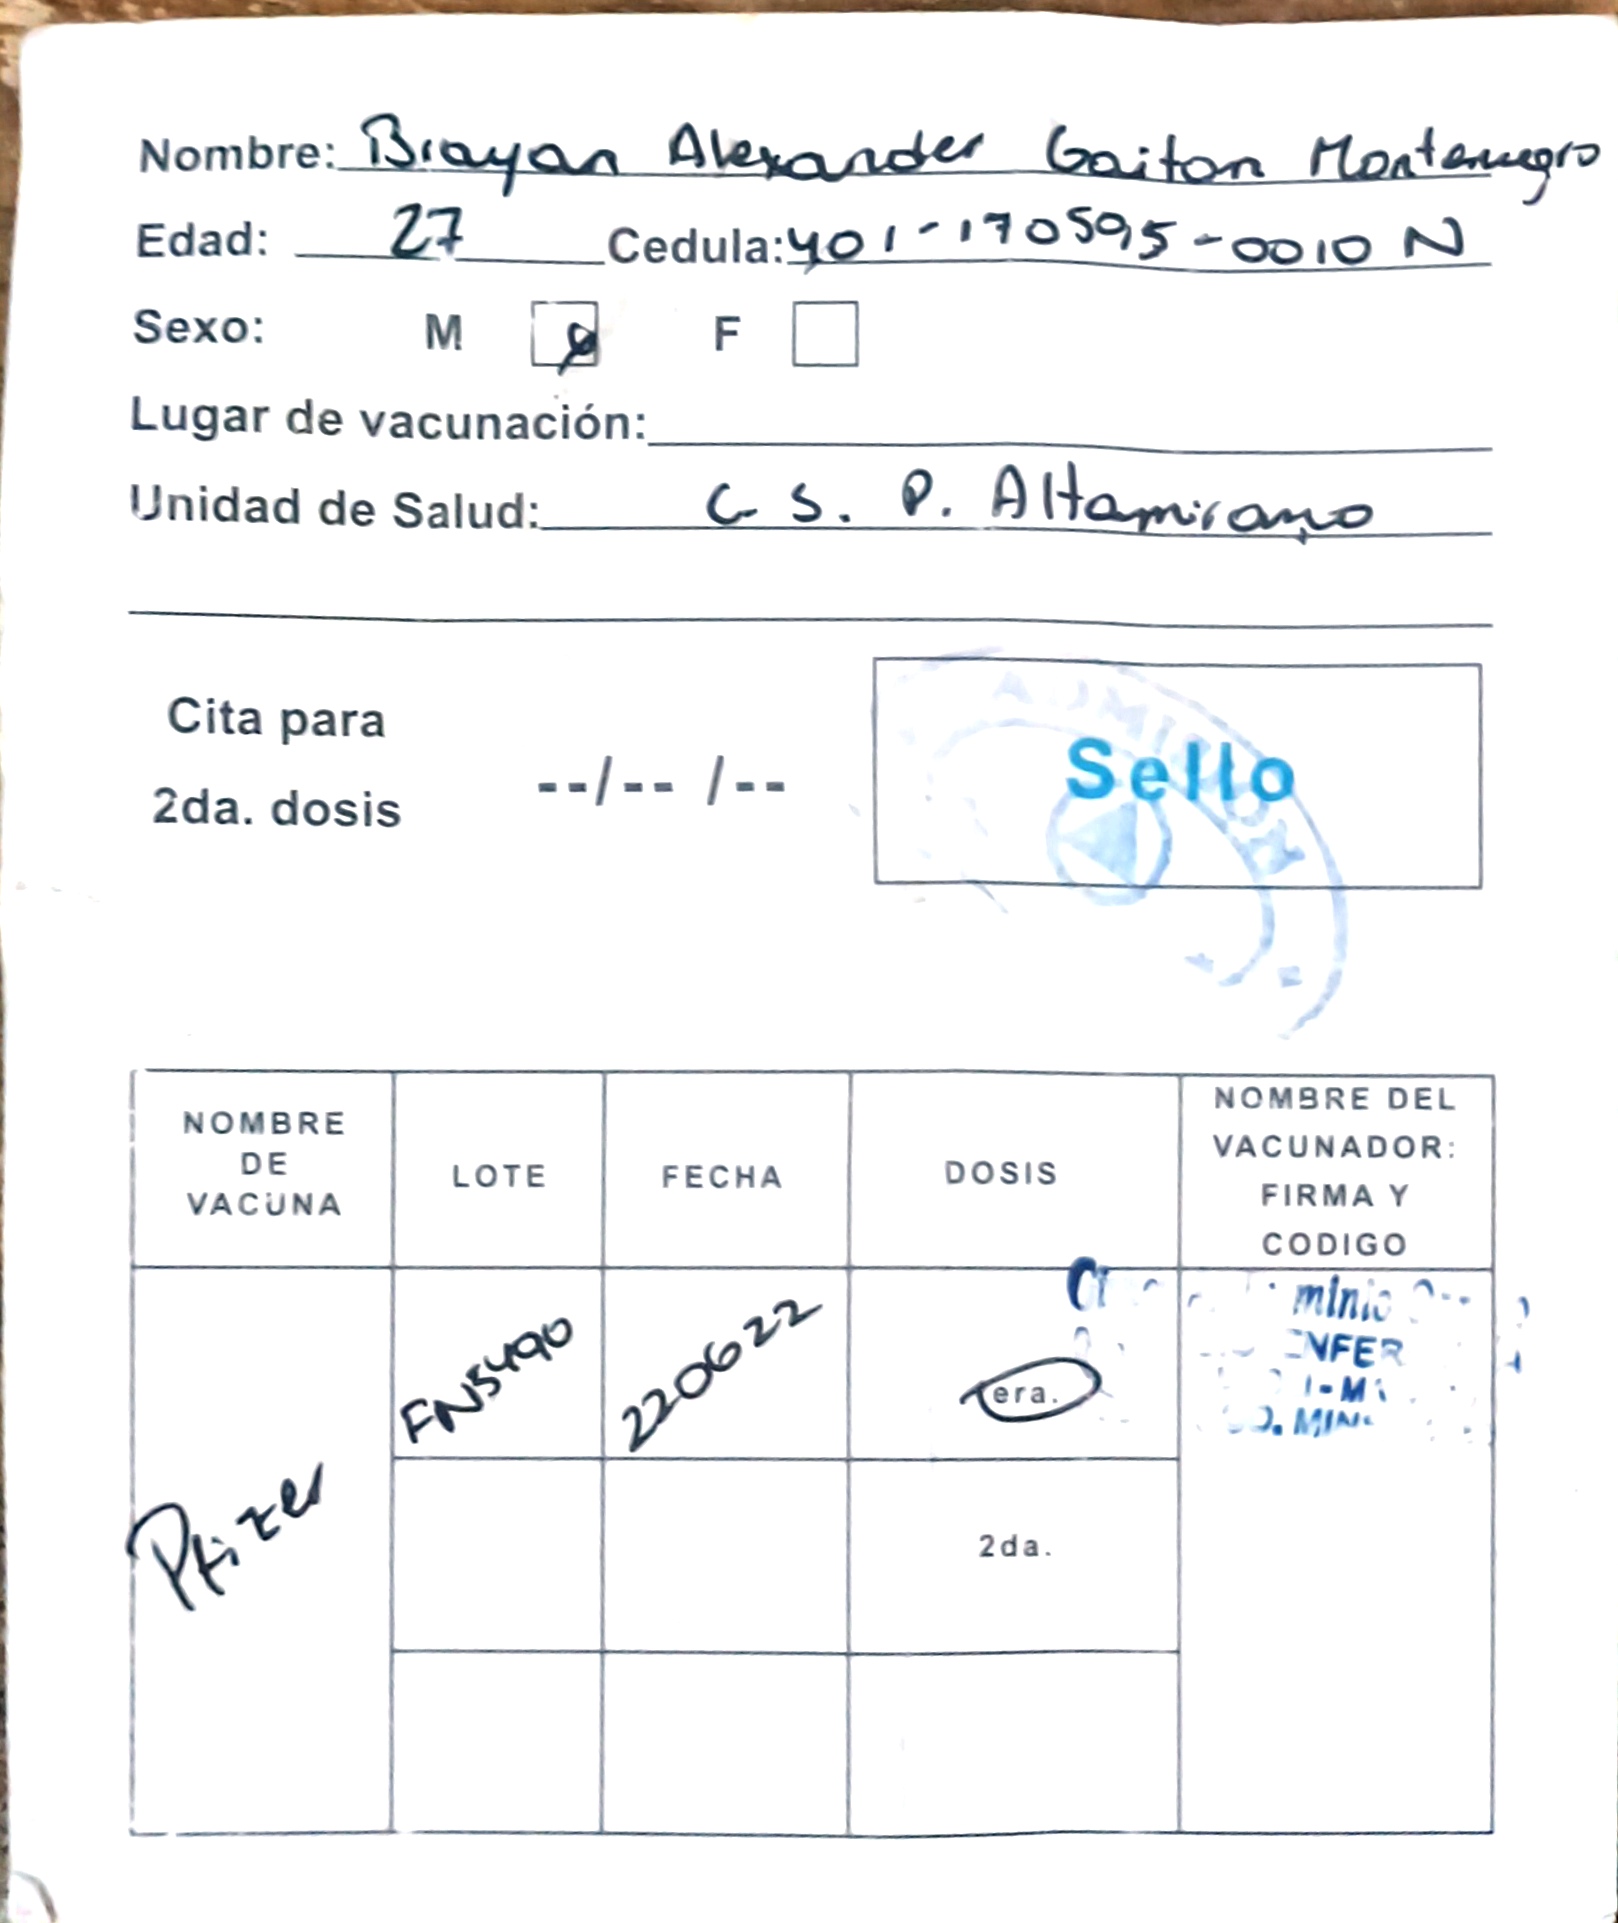 Nombre: Brayan Alexander Gaitan Montenegro
Edad: 27 Cedula: 401-170595-0010 N
Sexo: M F
Lugar de vacunación:
Unidad de Salud: C S. P. Altamirano
Cita para
2da. dosis
--/-- /--
Sello
NOMBRE
DE
VACUNA
LOTE
FECHA
DOSIS
NOMBRE DEL
VACUNADOR:
FIRMA Y
CODIGO
Pfizer
FN5490
220622
1era.
2da.